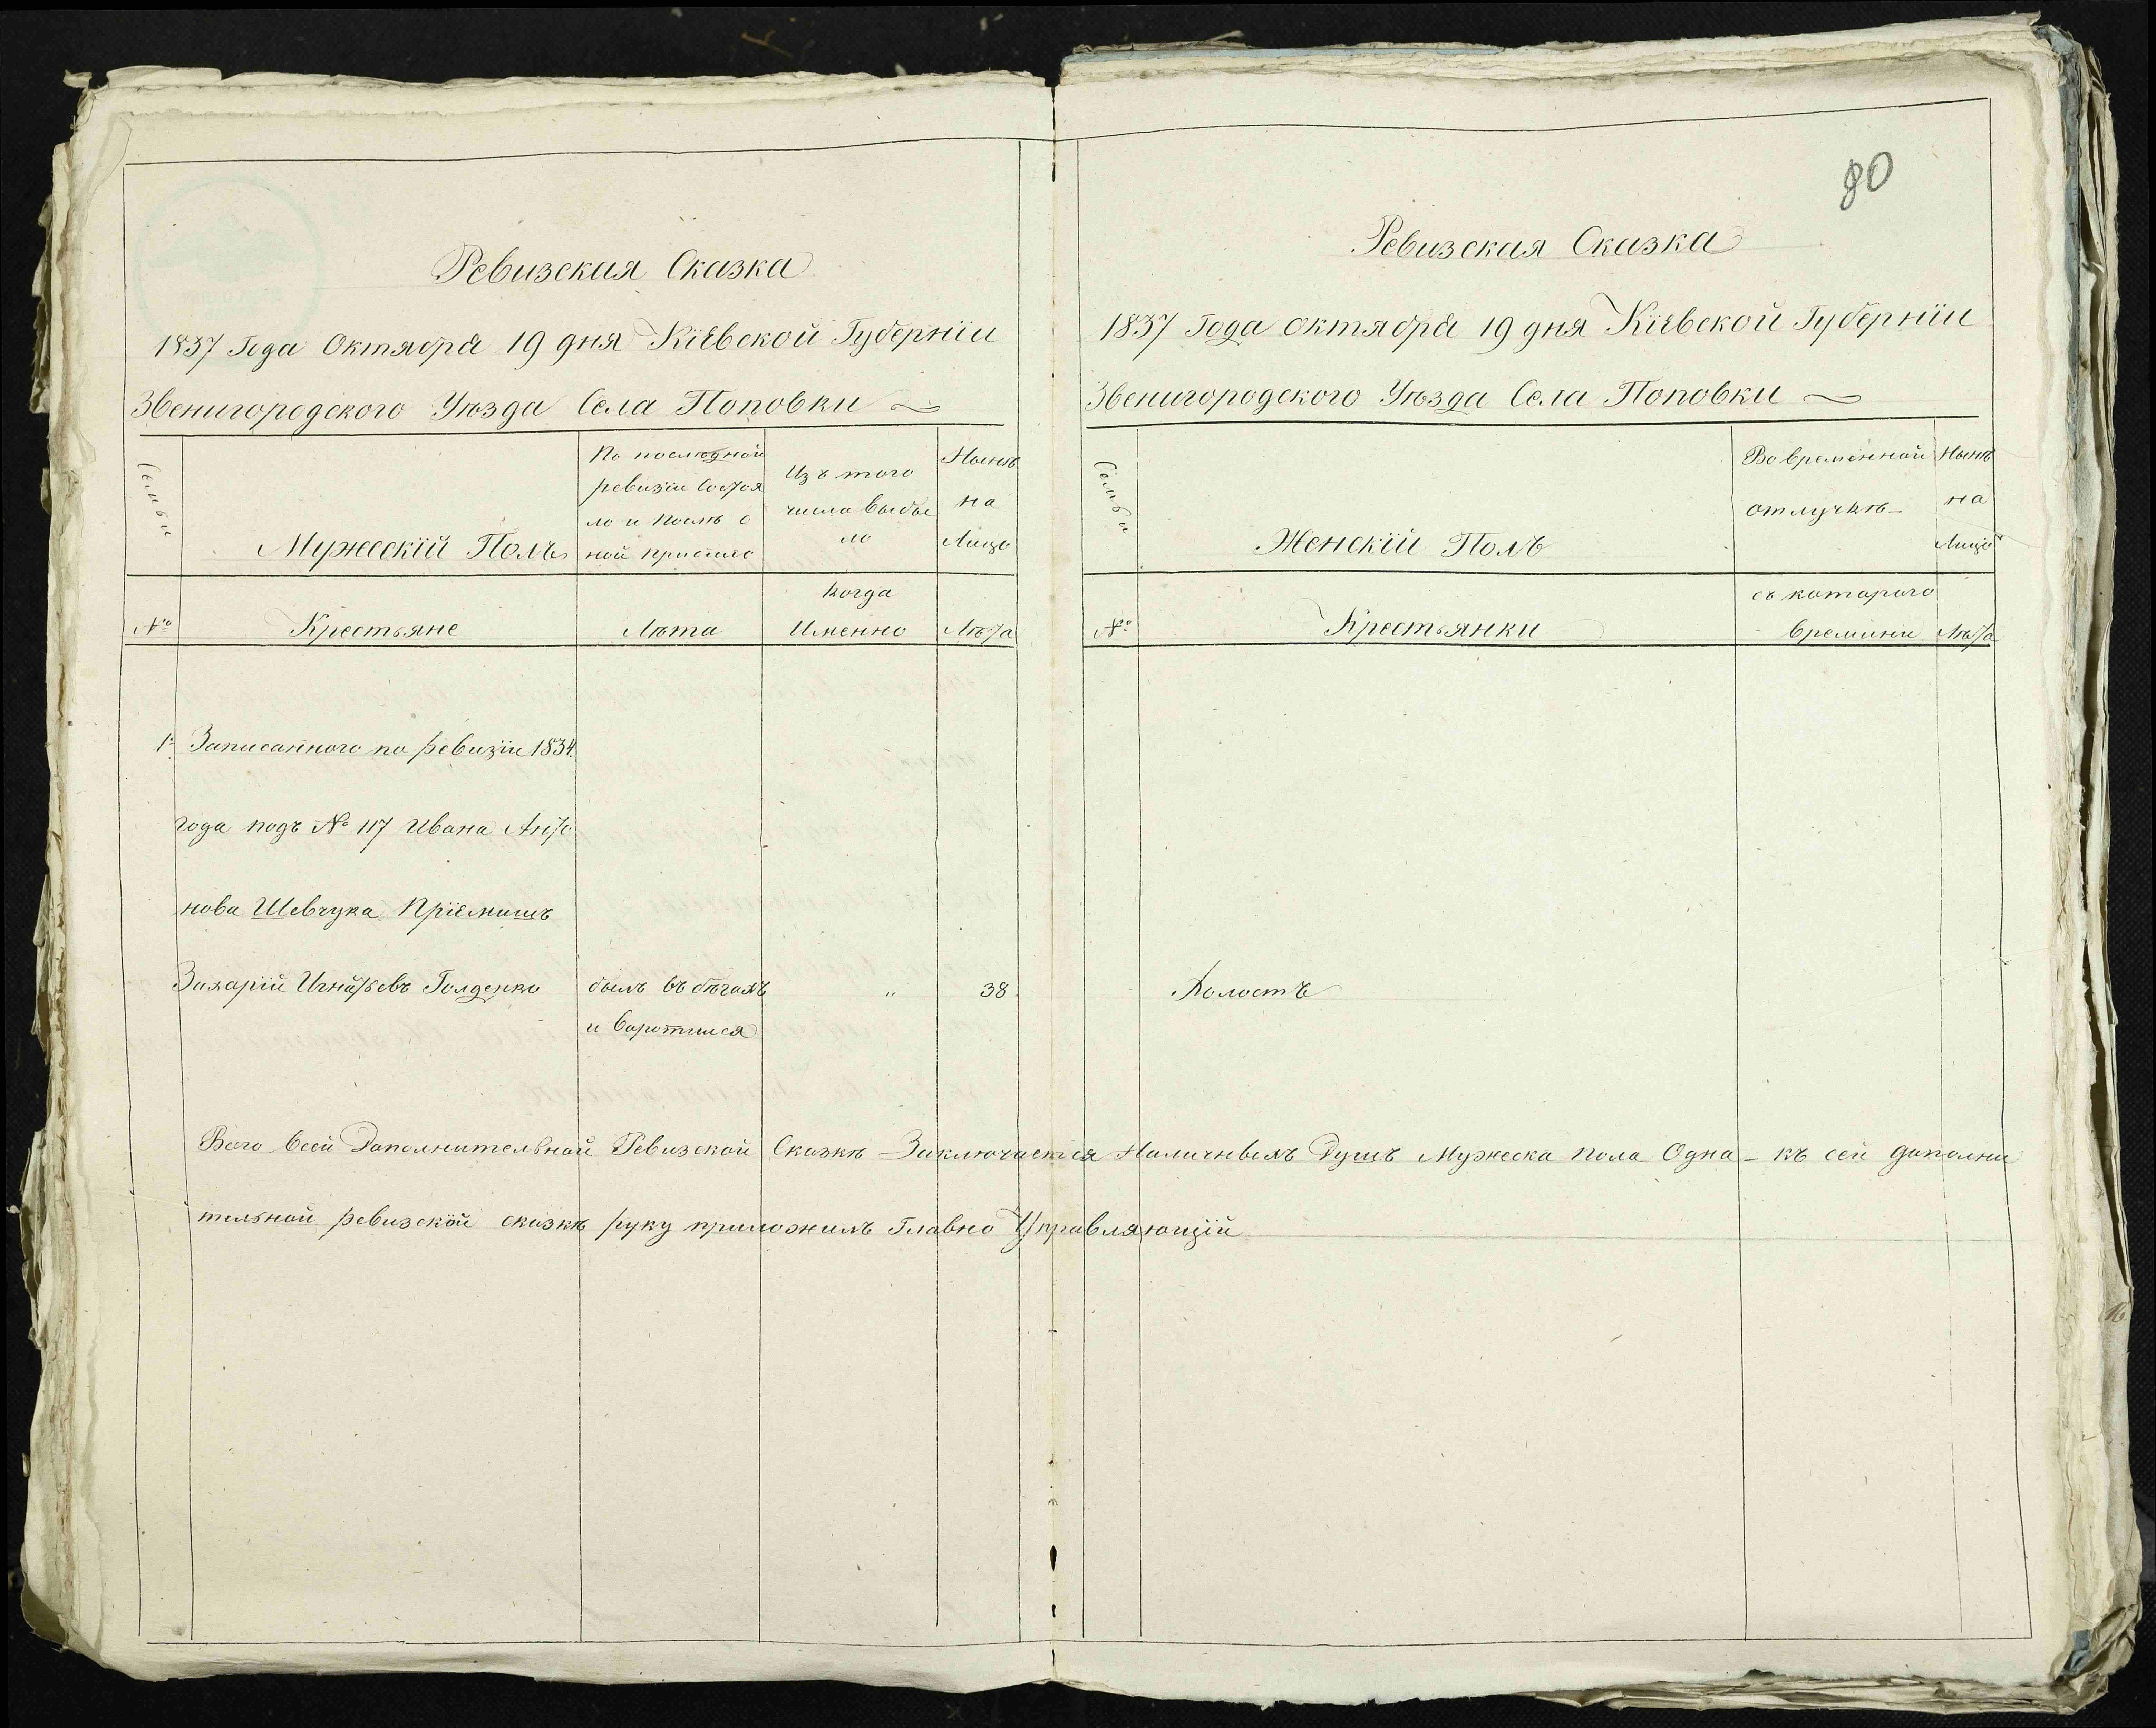 80
Ревизская Сказка
1837 Года Октября 19 дня Кіевской Губерніи
Звенигородского Уѣзда Села Поповки
Семьи
Мужескій Полъ
По послѣдной
ревизіи состоя
ло и послѣ о
ной прибыло
Изъ того
числа выбы
ло
Нынѣ
на
Лицо
№
Крестьяне
Лѣта
Когда
Именно
Лѣта
1. Записанного по ревизіи 1834.
года подъ № 117 Ивана Анто
нова Шевчука Пріемишъ
Захарій Игнатьевъ Голденко
былъ въ бѣгахъ
и воротился
"
38
Ревизская Сказка
1837 Года Октября 19 дня Кіевской Губерніи
Звенигородского Уѣзда Села Поповки
Семьи
Женскій Полъ
Во временной
отлучкѣ
Нынѣ
на
Лицо
№
Крестьянки
съ которого
времини
Лѣта
Холостъ
Всего всей Дополнительной Ревизской Сказкѣ Заключается Наличныхъ Душъ Мужеска пола Одна - къ сей дополни
тельной ревизской сказкѣ руку приложилъ Главно Управляющій